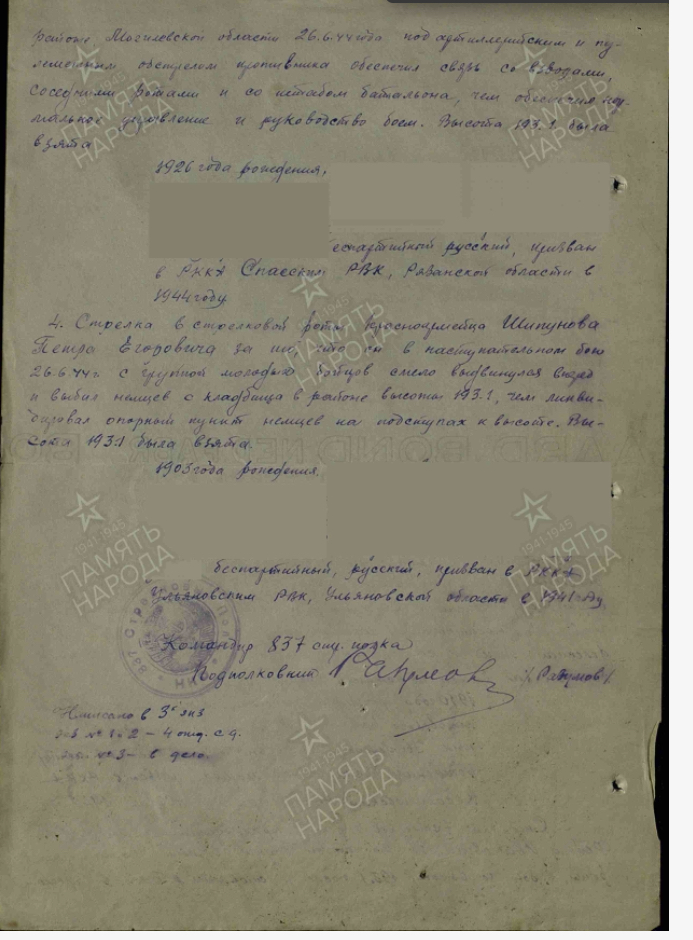 районе Могилевской области 26.6.44 года под артиллерийским и пу-
леметным обстрелом противника обеспечил связь со взводами,
соседними ротами и со штабом батальона, чем обеспечил нор-
мальное управление и руководство боем. Высота 193.1 была
взята
1926 года рождения,
беспартийный русский, призван
в РККА Спасским РВК, Рязанской области в
1944 году
4. Стрелка в стрелковой роты красноармейца Шипунова
Петра Егоровича за то, что он в наступательном бою
26.6.44 г. с группой молодых бойцов смело выдвинулся вперед
и выбил немцев с кладбища в районе высоты 193.1, чем ликви-
дировал опорный пункт немцев на подступах к высоте. Вы-
сота 193.1 была взята.
1903 года рождения.
беспартийный, русский, призван в РККА
Ульяновским РВК, Ульяновской области в 1941 году
837 Стрелковый Полк
Командир 837 стр. полка
Подполковник
Написано в 3х экз
экз № 1 и 2 – 4 отд. с.д.
экз. № 3 – в дело.
1941-1945
ПАМЯТЬ
НАРОДА
1941-1945
ПАМЯТЬ
НАРОДА
1941-1945
ПАМЯТЬ
НАРОДА
1941-1945
ПАМЯТЬ
НАРОДА
1941-1945
ПАМЯТЬ
НАРОДА
1941-1945
ПАМЯТЬ
НАРОДА